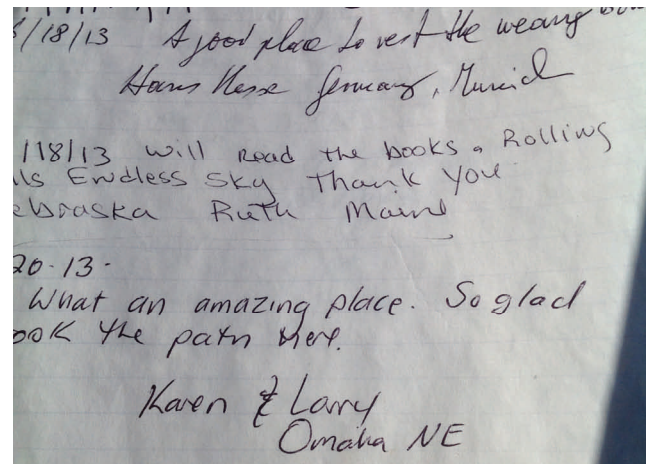 /18/13 A good place to rest the weary
Hans Hesse Germany, Munich
/18/13 will Read the books. Rolling
ls Endless sky Thank you
ebraska Ruth Maine
20-13-
What an amazing place. So glad
ook the path here.
Karen & Larry
Omaha NE